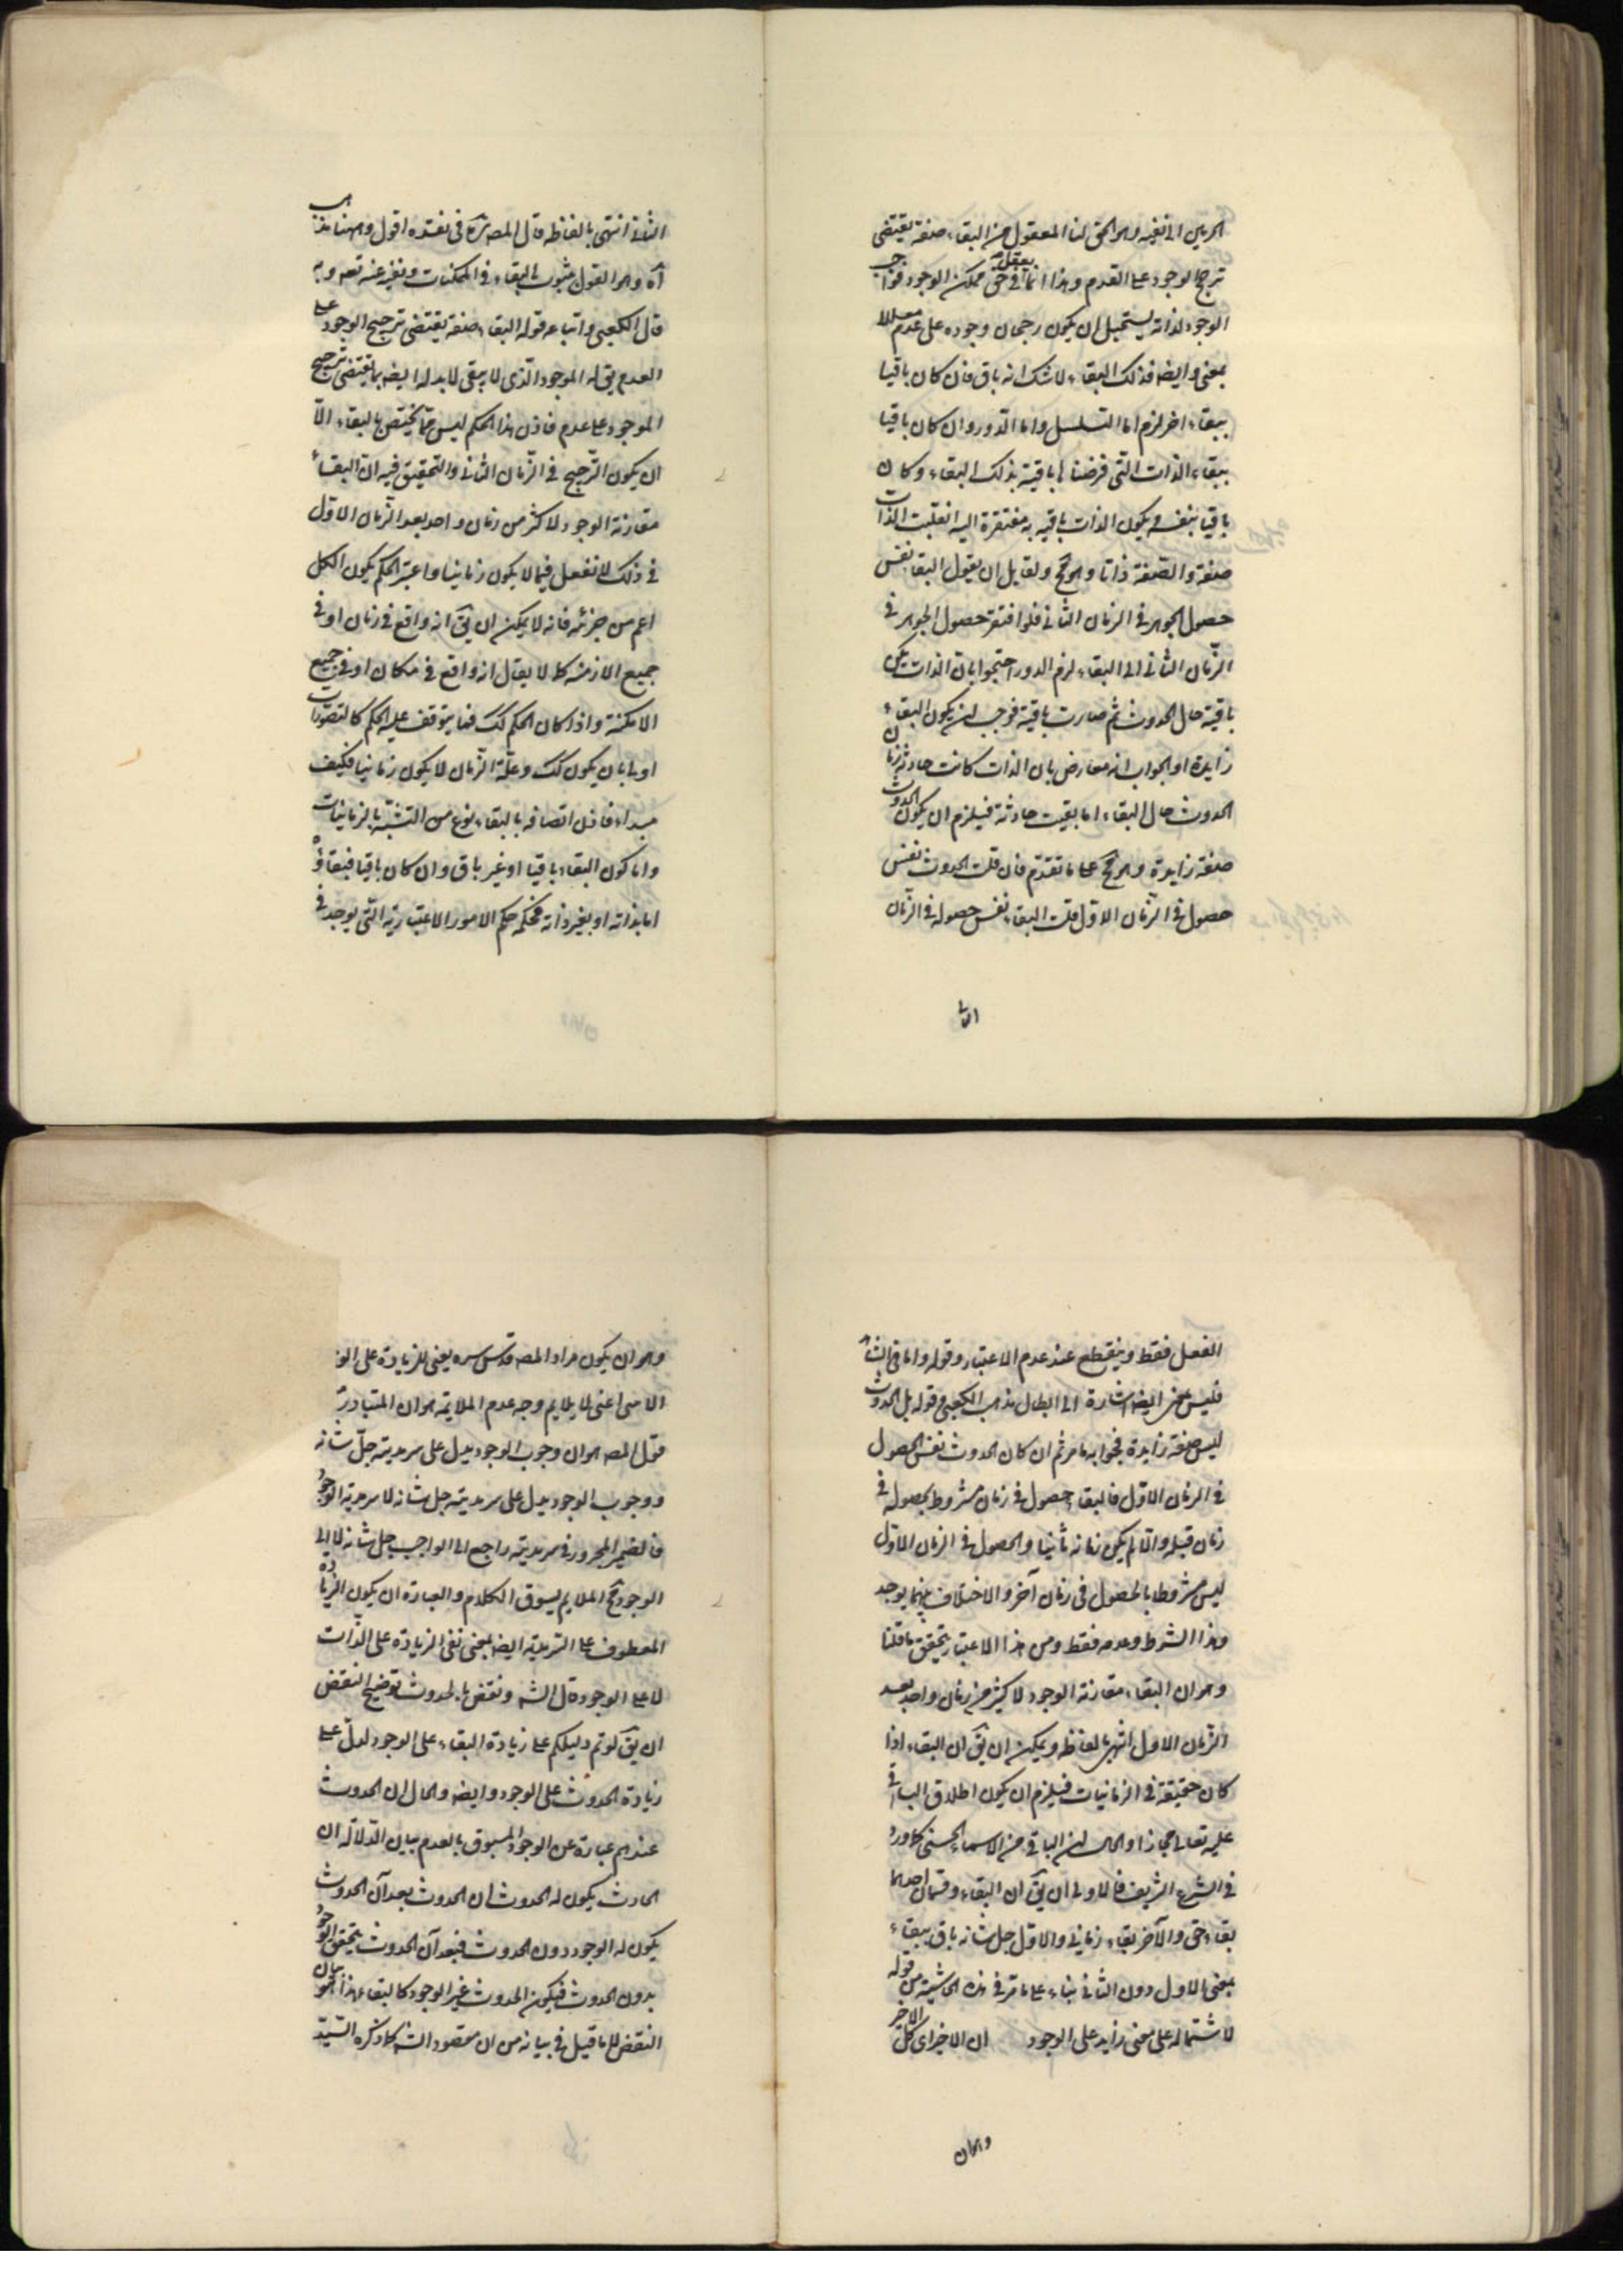 الحرمين الى نفيه وهو الحق لنا المعقول من البقاء صفة يقتضى
ترجح الوجود على العدم وهذا انما يعقل فى حق ممكن الوجود فواجب
الوجود لذاته يستحيل ان يكون رجحان وجوده على عدم معللا
بمعنى وايضه فذلك البقاء لا شك انه باق فان كان باقيا
ببقاء اخر لزم اما التسلسل واما الدور وان كان باقيا
ببقاء الذات التى فرضنا باقية بذلك البقاء وكان
باقيا بنفسه ويكون الذات باقيه به مفتقرة اليه انقلبت الذات
صفة والصفة ذاتا وهو مح ولقايل ان يقول البقاء نفس
حصول الجوهر فى الزمان الثانى فلو افتقر حصول الجوهر فى
الزمان الثانى الى البقاء لزم الدور احتجوا بان الذات لم يكن
باقية حال الحدوث ثم صارت باقية فوجب ان يكون البقاء
زايدة او الجواب انه معارض بان الذات كانت حادثة زمان
الحدوث حال البقاء ما بقيت حادثة فيلزم ان يكون الحدوث
صفة زايدة وهو مح على ما تقدم فان قلت الحدوث نفس
حصول فى الزمان الاول قلت البقاء نفس حصوله فى الزمان
الثانى
الثانى انتهى بالفاظه قال المصه فى نقده اقول وههنا مذهب
آه وهو القول بثبوت البقاء فى الممكنات ونفيه عنه تعه وبه
قال الكعبى واتباعه قوله البقاء صفة يقتضى ترجيح الوجود على
العدم يق له الموجود الذى لا يبقى لا بد له ايضه مما يقتضى ترجيح
الموجود على عدم فاذن هذا الحكم ليس مما يختص بالبقاء الّا
ان يكون الترجيح فى الزمان الثانى والتحقيق فيه ان البقاء
مقارنة الوجود لاكثر من زمان واحد بعد الزمان الاول
فى ذلك لا نفعل فيما لا يكون زمانيا واعتبر الحكم يكون الكل
اعم من جزئه فانه لا يمكن ان يق انه واقع فى زمان او فى
جميع الازمنه كما لا يقال انه واقع فى مكان او فى جميع
الامكنة واذا كان الحكم كك فما يتوقف عليه الحكم كالتصورات
اولى بان يكون كك وعلة الزمان لا يكون زمانيا فكيف
مبداء فاذن اتصافه بالبقاء نوع من التشبه بالزمانيات
واما كون البقاء باقيا او غير باق وان كان باقيا فبقاؤه
اما بذاته او بغير ذاته فحكمه حكم الامور الاعتبارية التى يوجد فى
العقل فقط وينقطع عند عدم الاعتبار وقوله واما فى الشا
فليس بمعنى ايضه اشارة الى ابطال مذهب الكعبى وقوله بل الحدوث
ليس صفة زايدة فجوابه ما مر ثم ان كان الحدوث نفس الحصول
فى الزمان الاول فالبقاء حصول فى زمان مشروط بحصوله فى
زمان قبله والا لم يكن زمانه ثانيا والحصول فى الزمان الاول
ليس مشروطا بالحصول فى زمان آخر والاختلاف بينهما يوجد
وهذا الشرط وعدمه فقط ومن هذا الاعتبار يتحقق ما قلنا
وهو ان البقاء مقارنة الوجود لاكثر من زمان واحد بعد
الزمان الاول انتهى بالفاظه ويمكن ان يق ان البقاء اذا
كان حقيقة فى الزمانيات فيلزم ان يكون اطلاق الباقى
عليه تعالى مجازا والحال ان الباقى من الاسماء الحسنى كما ورد
فى الشرع الشريف فالاولى ان يق ان البقاء وقسمان احدهما
بقاء حق والآخر بقاء زمانى والاول جل شانه باق ببقاء
بمعنى الاول دون الثانى بناء على ما مر فى هذه الحاشية من قوله
لاشتماله على معنى زايد على الوجود ان الاخير اى كل الاخر
وهو ان
وهو ان يكون مراد المصه قدس سره يعنى للزيادة على الو
الامى اعنى لا يلايم وجه عدم الملايمة هو ان المتبادر
قول المصه هو ان وجوب الوجود يدل على سرمديته جل شانه
ووجوب الوجود يدل على سرمديته جل شانه لا سرمدية الوجود
فالضمير المجرور فى سرمديته راجع الى الواجب جل شانه لا الى
الوجود فح الملايم لسوق الكلام والعبارة ان يكون الزيادة
المعطوف على السرمدية ايضه بمعنى نفى الزيادة على الذات
لا على الوجود قال الشه ونقض بالحدوث توضيح النقض
ان يق لو تم دليلكم على زيادة البقاء على الوجود لدل على
زيادة الحدوث على الوجود وايضه والحال ان الحدوث
عندهم عبارة عن الوجود المسبوق بالعدم بيان الدلالة ان
الحادث يكون له الحدوث ان الحدوث بعد آن الحدوث
يكون له الوجود دون الحدوث فبعد آن الحدوث يتحقق الوجود
بدون الحدوث فيكون الحدوث غير الوجود كالبقاء هذا هو بيان
النقض لا ما قيل فى بيانه من ان مقصود الشه كما ذكره السيد